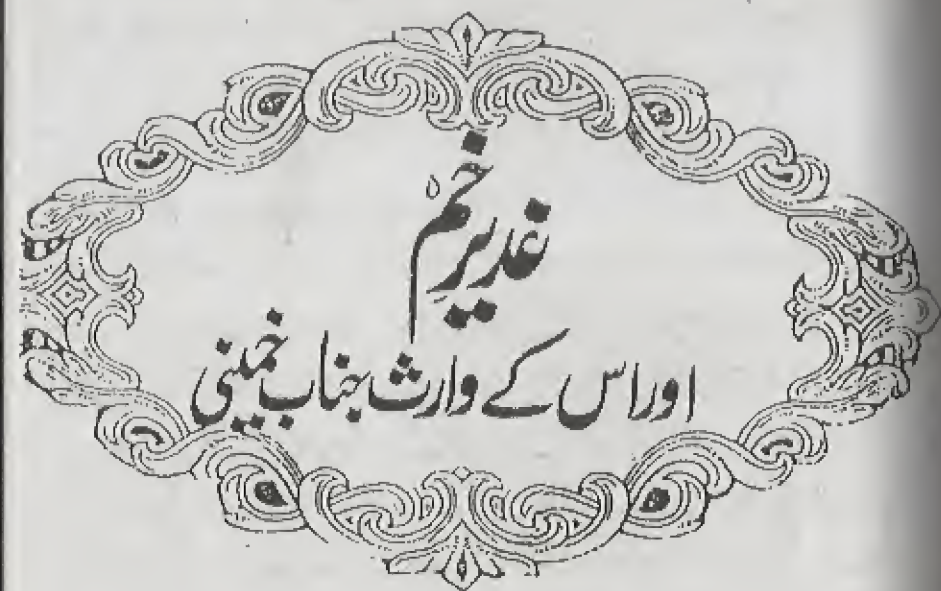 غدیر خم
اور اس کے وارث جناب خمینی